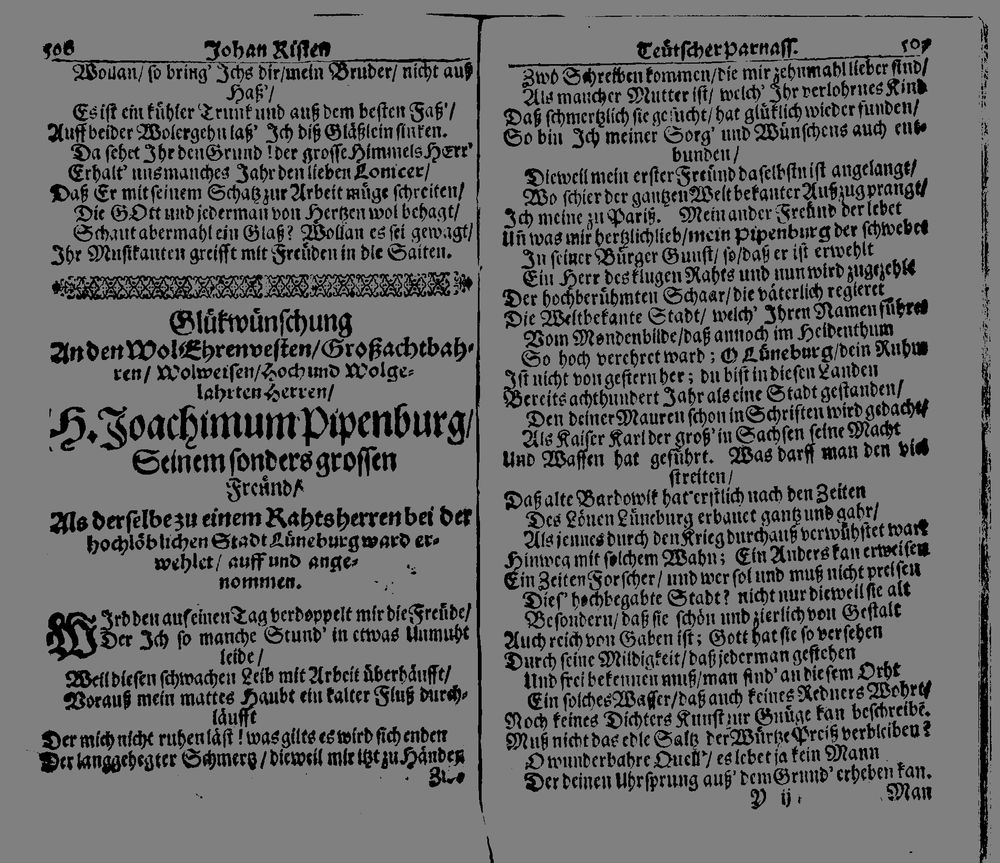 506 Johan Risten
Wollan/ so bring' Ichs dir/mein Bruder/ nicht auß
Haß'/
Es ist ein kühler Trunk und auß dem besten Faß'/
Auff beider Wolergehn laß' Ich diß Gläßlein sinken.
Da sehet Ihr den Grund! der grosse Himmels HErr'
Erhalt' uns manches Jahr den lieben Lonicer/
Daß Er mit seinem Schatz zur Arbeit müge schreiten/
Die GOtt und jederman von Hertzen wol behagt/
Schaut abermahl ein Glaß? Wollan es sei gewagt/
Ihr Musikanten greifft mit Freüden in die Saiten.
Glükwünschung
An den WolEhrenvesten/Großachtbah-
ren/ Wolweisen/Hoch und Wolge-
lahrten Herren/
H. Joachimum Pipenburg/
Seinem sonders grossen
Freünd/
Als derselbe zu einem Rahtsherren bei der
hochlöblichen Stadt Lüneburg ward er-
wehlet/ auff und ange-
nommen.
WIrd den auf einen Tag verdoppelt mir die Freüde/
Der Ich so manche Stund' in etwas Unmuht
leide/
Weil diesen schwachen Leib mit Arbeit überhäufft/
Vorauß mein mattes Haubt ein kalter Fluß durch-
läufft
Der mich nicht ruhen läst! was gilts es wird sich enden
Der langgehegter Schmertz/dieweil mir itzt zu Händen
Zwo
Teütscher Parnass. 507
Zwo Schreiben kommen/die mir zehnmahl lieber sind/
Als mancher Mutter ist/ welch' Ihr verlohrnes Kind
Daß schmertzlich sie gesucht/hat glüklich wieder funden/
So bin Ich meiner Sorg' und Wünschens auch ent-
bunden/
Dieweil mein erster Freünd daselbst ist angelangt/
Wo schier der gantzen Welt bekanter Aufzug prangt/
Ich meine zu Pariß. Mein ander Freünd der lebet
Uñ was mir hertzlich lieb/mein Pipenburg der schwebet
In seiner Bürger Gunst/ so/daß er ist erwehlt
Ein Herr des klugen Rahts und nun wird zugezehlt
Der hochberühmten Schaar/die väterlich regieret
Die Weltbekante Stadt/ welch' Ihren Namen führet
Vom Mondenbilde/daß annoch im Heidenthum
So hoch verehret ward; O Lüneburg/dein Ruhm
Ist nicht von gestern her; du bist in diesen Landen
Bereits achthundert Jahr als eine Stadt gestanden/
Den deiner Mauren schon in Schriften wird gedacht/
Als Kaiser Karl der groß' in Sachsen seine Macht
Und Waffen hat geführt. Was darff man den viel
streiten/
Daß alte Bardowik hat erstlich nach den Zeiten
Des Löuen Lüneburg erbauet gantz und gahr/
Als jennes durch den Krieg durchauß verwühstet war?
Hinweg mit solchem Wahn; Ein Anders kan erweisen
Ein Zeiten Forscher/ und wer sol und muß nicht preisen
Dies' hochbegabte Stadt? nicht nur dieweil sie alt
Besondern/ daß sie schön und zierlich von Gestalt
Auch reich von Gaben ist; Gott hat sie so versehen
Durch seine Mildigkeit/daß jederman gestehen
Und frei bekennen muß/man find' an diesem Orht
Ein solches Wasser/daß auch keines Redners Wohrt/
Noch keines Dichters Kunst zur Gnüge kan beschreibē.
Muß nicht das edle Saltz der Würtze Preiß verbleiben?
O wunderbahre Quell'/ es lebet ja kein Mann
Der deinen Uhrsprung auß' dem Grund' erheben kan.
Y ij. Man